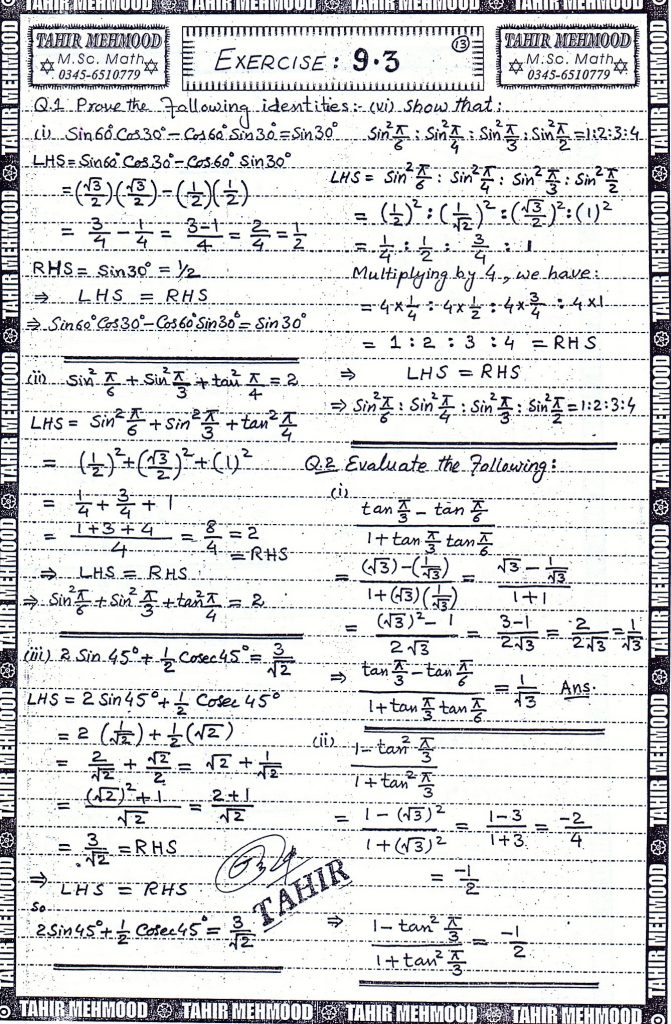 TAHIR MEHMOOD
M.Sc. Math
0345-6510779
EXERCISE: 9.3
13
TAHIR MEHMOOD
M.Sc. Math
0345-6510779
Q.1 Prove the Following identities:-
(i) Sin60° Cos30° - Cos60° Sin30° = Sin30°
LHS = Sin60° Cos30° - Cos60° Sin30°
= (√3/2)(√3/2) - (1/2)(1/2)
= 3/4 - 1/4 = 3-1/4 = 2/4 = 1/2
RHS = Sin30° = 1/2
⇒ LHS = RHS
⇒ Sin60° Cos30° - Cos60° Sin30° = Sin30°
(ii) Sin² π/6 + Sin² π/3 + tan² π/4 = 2
LHS = Sin² π/6 + Sin² π/3 + tan² π/4
= (1/2)² + (√3/2)² + (1)²
= 1/4 + 3/4 + 1
= 1+3+4/4 = 8/4 = 2
= RHS
⇒ LHS = RHS
⇒ Sin² π/6 + Sin² π/3 + tan² π/4 = 2
(iii) 2 Sin 45° + 1/2 Cosec45° = 3/√2
LHS = 2 Sin45° + 1/2 Cosec 45°
= 2 (1/√2) + 1/2 (√2)
= 2/√2 + √2/2 = √2 + 1/√2
= (√2)² + 1/√2 = 2+1/√2
= 3/√2 = RHS
⇒ LHS = RHS
So
2Sin45° + 1/2 Cosec45° = 3/√2
(vi) Show that:
Sin² π/6 : Sin² π/4 : Sin² π/3 : Sin² π/2 = 1:2:3:4
LHS = Sin² π/6 : Sin² π/4 : Sin² π/3 : Sin² π/2
= (1/2)² : (1/√2)² : (√3/2)² : (1)²
= 1/4 : 1/2 : 3/4 : 1
Multiplying by 4, we have:
= 4×1/4 : 4×1/2 : 4×3/4 : 4×1
= 1 : 2 : 3 : 4 = RHS
⇒ LHS = RHS
⇒ Sin² π/6 : Sin² π/4 : Sin² π/3 : Sin² π/2 = 1:2:3:4
Q.2 Evaluate the Following:
(i)
tan π/3 - tan π/6 / 1 + tan π/3 tan π/6
= (√3) - (1/√3) / 1 + (√3)(1/√3) = √3 - 1/√3 / 1+1
= (√3)² - 1 / 2√3 = 3-1/2√3 = 2/2√3 = 1/√3
⇒ tan π/3 - tan π/6 / 1 + tan π/3 tan π/6 = 1/√3 Ans.
(ii) 1 - tan² π/3 / 1 + tan² π/3
= 1 - (√3)² / 1 + (√3)² = 1-3/1+3 = -2/4
= -1/2
⇒ 1 - tan² π/3 / 1 + tan² π/3 = -1/2
TAHIR
TAHIR MEHMOOD TAHIR MEHMOOD TAHIR MEHMOOD TAHIR MEHMOOD